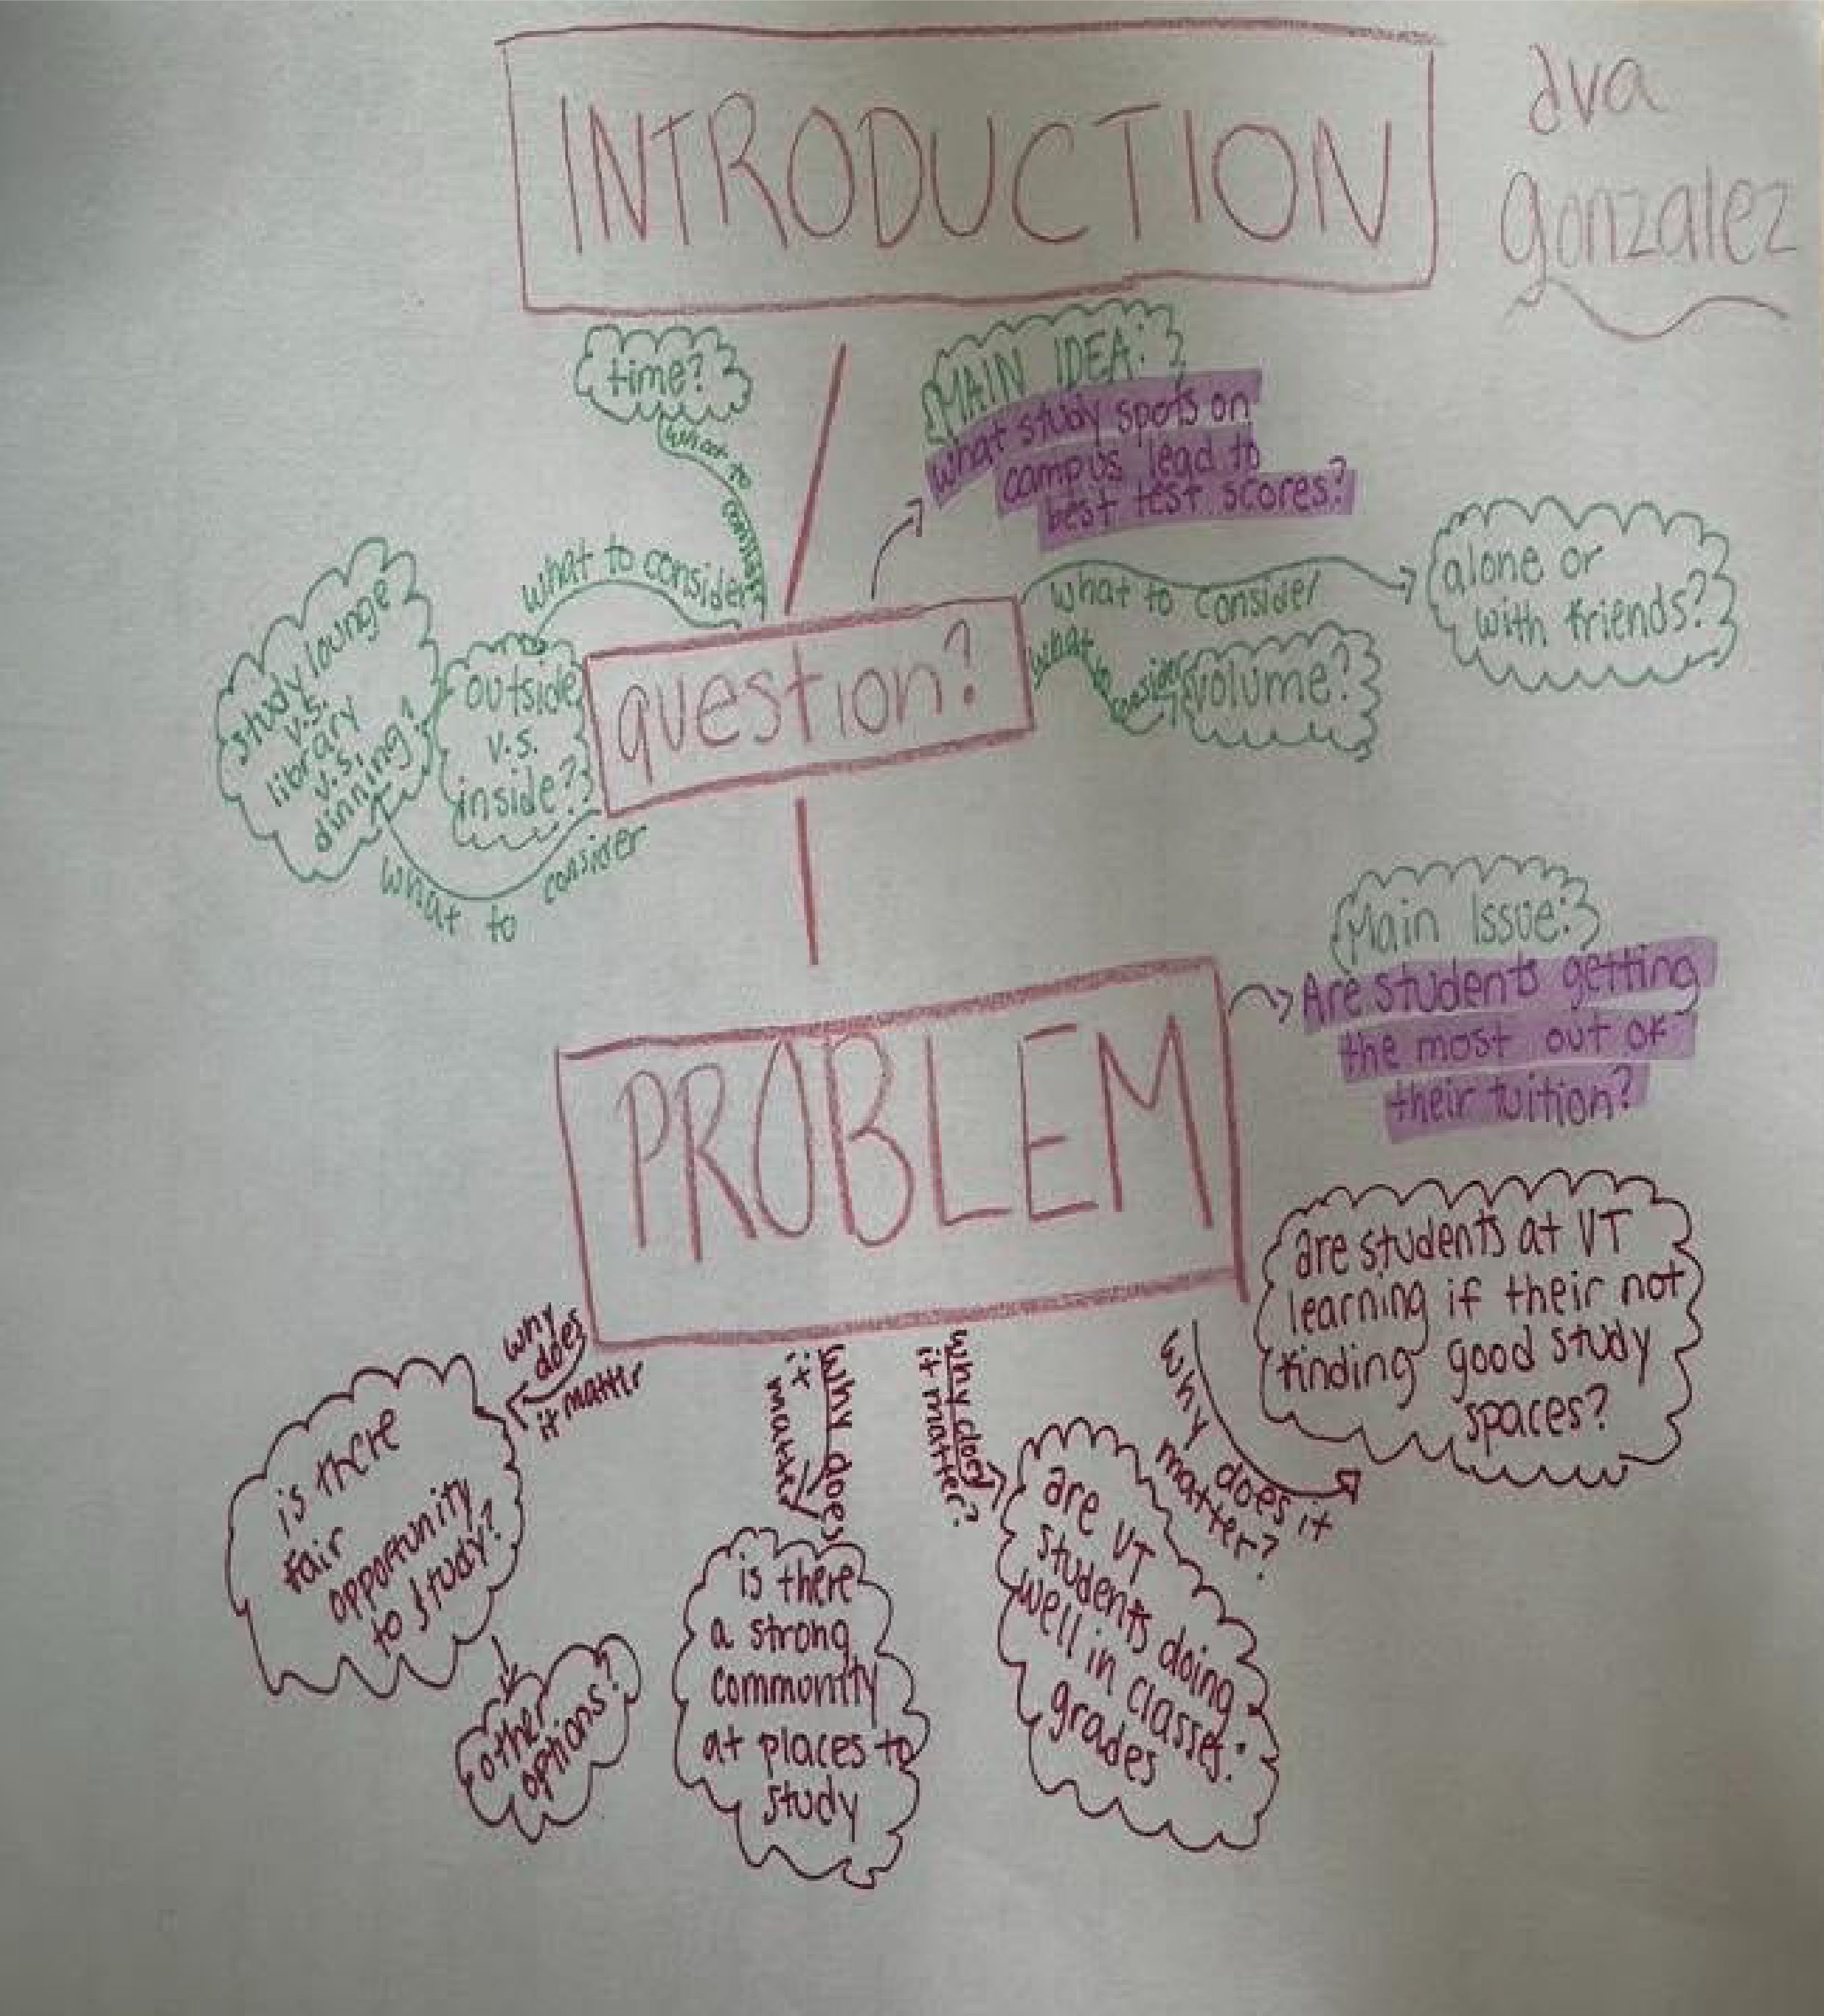 INTRODUCTION
ava
gonzalez
time?
what to consider
MAIN IDEA:
what study spots on
campus lead to
best test scores?
what to consider
alone or
with friends?
what to consider
volume?
what to consider
outside
v.s.
inside?
study lounge
v.s.
library
v.s.
dinning?
what to consider
question?
Main Issue:
Are students getting
the most out of
their tuition?
PROBLEM
why does
it matter
is there
fair
opportunity
to study?
other
options?
why does
it matter
is there
a strong
community
at places to
study
why does
it matter?
are VT
students doing
well in classes:
grades
why does it
matter?
are students at VT
learning if their not
finding good study
spaces?